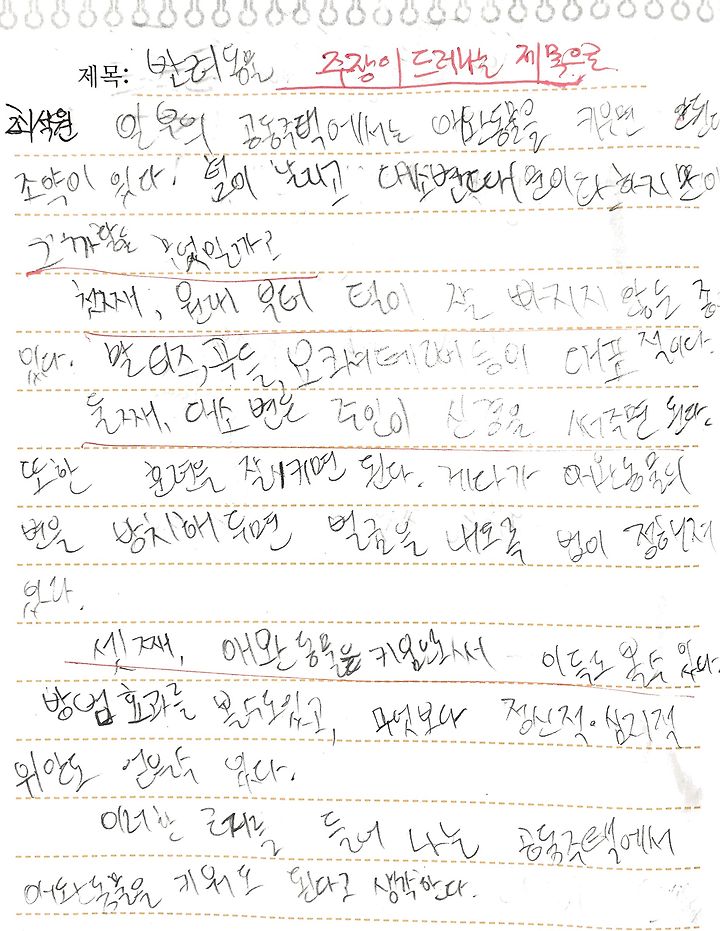 제목: 반려동물 주장이 드러나는 제목으로
최석원 일부의 공동주택에서는 애완동물을 키우면 안된다
조약이 있다. 털이 날리고 대소변때문이다 하지만 이
그까닭은 무엇일까?
첫째, 원래 부터 털이 잘 빠지지 않는 종
있다. 말티즈, 푸들, 요크셔테리어 등이 대표적이다.
둘째, 대소변은 주인이 신경을 써주면 된다.
또한 훈련을 잘시키면 된다. 게다가 애완동물의
변을 방치해두면 벌금을 내도록 법이 정해져
있다.
셋째, 애완동물을 키움으로서 이득도 볼수 있다.
방범효과를 볼수도있고, 무엇보다 정신적·심리적
위안도 얻을수 있다.
이러한 근거를 들어 나는 공동주택에서
애완동물을 키워도 된다고 생각한다.